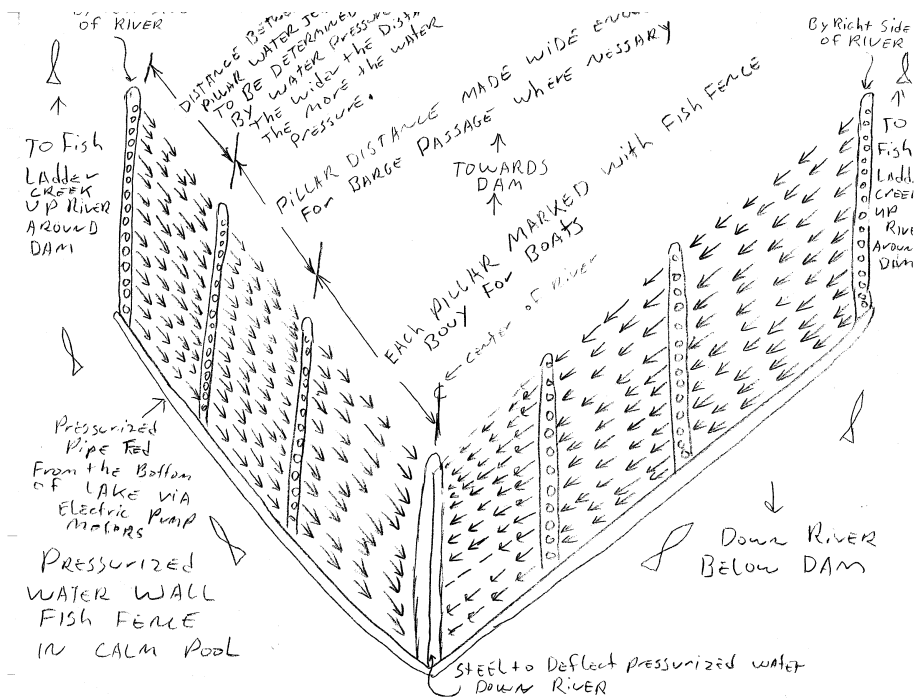 By Right Side
of RIVER
DISTANCE BETW
PILLAR WATER JE
TO BE DETERMINED
BY WATER PRESSURE
The wider the Dista
the more the water
pressure.
PILLAR DISTANCE MADE WIDE ENOU
FOR BARGE PASSAGE WHERE NESSARY
TOWARDS
DAM
EACH PILLAR MARKED with FISH FENCE
BOUY FOR BOATS
center of River
By Right Side
of RIVER
TO Fish
LADDER
CREEK
UP RIVER
AROUND
DAM
TO
Fish
LADD
CREEK
UP
RIVE
AROUN
DAM
Pressurized
Pipe Fed
From the Bottom
of LAKE VIA
Electric Pump
Moters
PRESSURIZED
WATER WALL
FISH FENCE
IN CALM POOL
DOWN RIVER
BELOW DAM
STEEL to Deflect pressurized water
DOWN RIVER